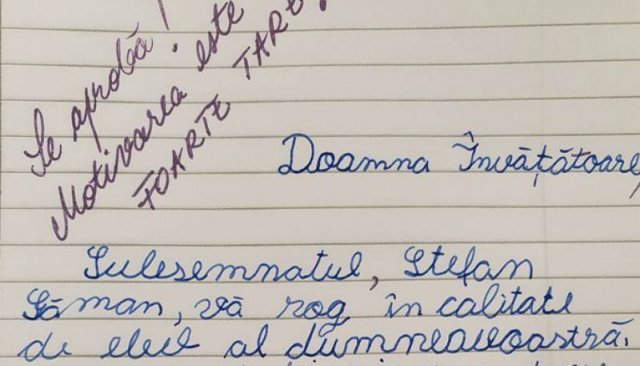 Se aprobă!
Motivarea este
FOARTE TARE
Doamna Învățătoare,
Sulesemnatul, Ștefan
Săman, vă rog în calitate
de elev al dumneavoastră.